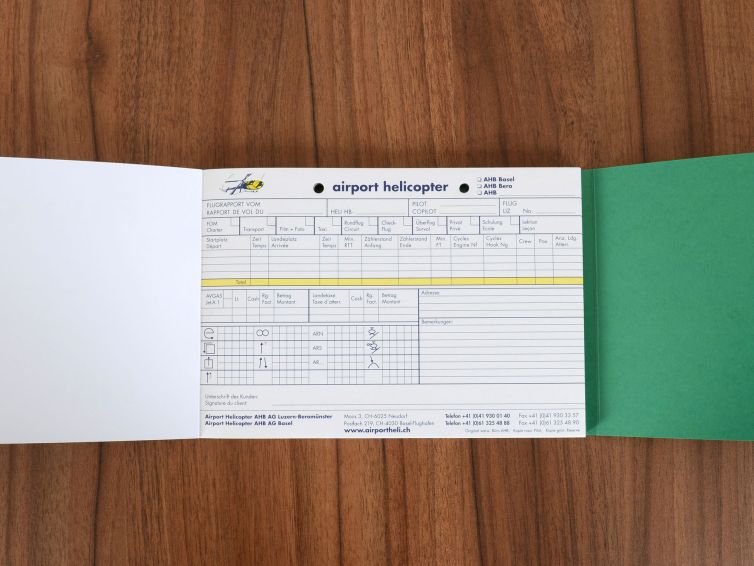 airport helicopter
AHB Basel
AHB Bero
AHB
FLUGRAPPORT VOM
RAPPORT DE VOL DU
HELI HB-
PILOT
COPILOT
FLUG
LIZ No
FOM
Charter
Transport
Film + Foto
Taxi
Rundflug
Circuit
Check-
Flug
Überflug
Survol
Privat
Privé
Schulung
Ecole
Lektion
Leçon
Startplatz
Départ
Zeit
Temps
Landeplatz
Arrivée
Zeit
Temps
Min.
RTT
Zählerstand
Anfang
Zählerstand
Ende
Min.
FT
Cycles
Engine Nf
Cycles
Hook Ng
Crew
Pax
Anz. Ldg.
Atterr.
Total
AVGAS
Jet-A 1
Lt.
Cash
Rg.
Fact.
Betrag
Montant
Landetaxe
Taxe d'atterr.
Cash
Rg.
Fact.
Betrag
Montant
Adresse:
Bemerkungen:
ARN
ARS
AR
Unterschrift des Kunden:
Signature du client:
Airport Helicopter AHB AG Luzern-Beromünster
Airport Helicopter AHB AG Basel
Moos 3, CH-6025 Neudorf
Postfach 219, CH-4030 Basel-Flughafen
www.airportheli.ch
Telefon +41 (0)41 930 01 40
Telefon +41 (0)61 325 48 88
Fax +41 (0)41 930 33 57
Fax +41 (0)61 325 48 90